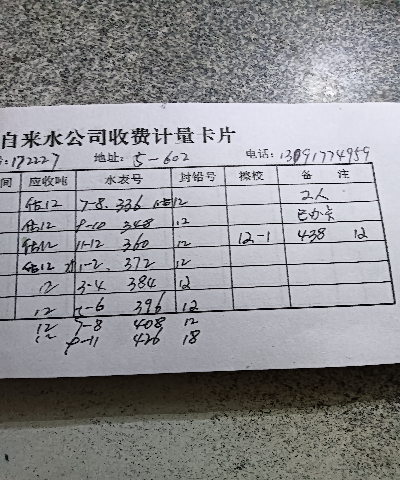 自来水公司收费计量卡片
号:172227 地址: 5-602 电话: 13091774959
间 应收吨 水表号 封铅号 擦校 备注
估12 7-8. 336 估12 2人
估12 9-10 348 12 已办卡
估12 11-12 360 12 12-1 438 12
估12 1-2. 372 12
12 3-4 384 12
12 5-6 396 12
12 7-8 408 12
12 9-11 426 18